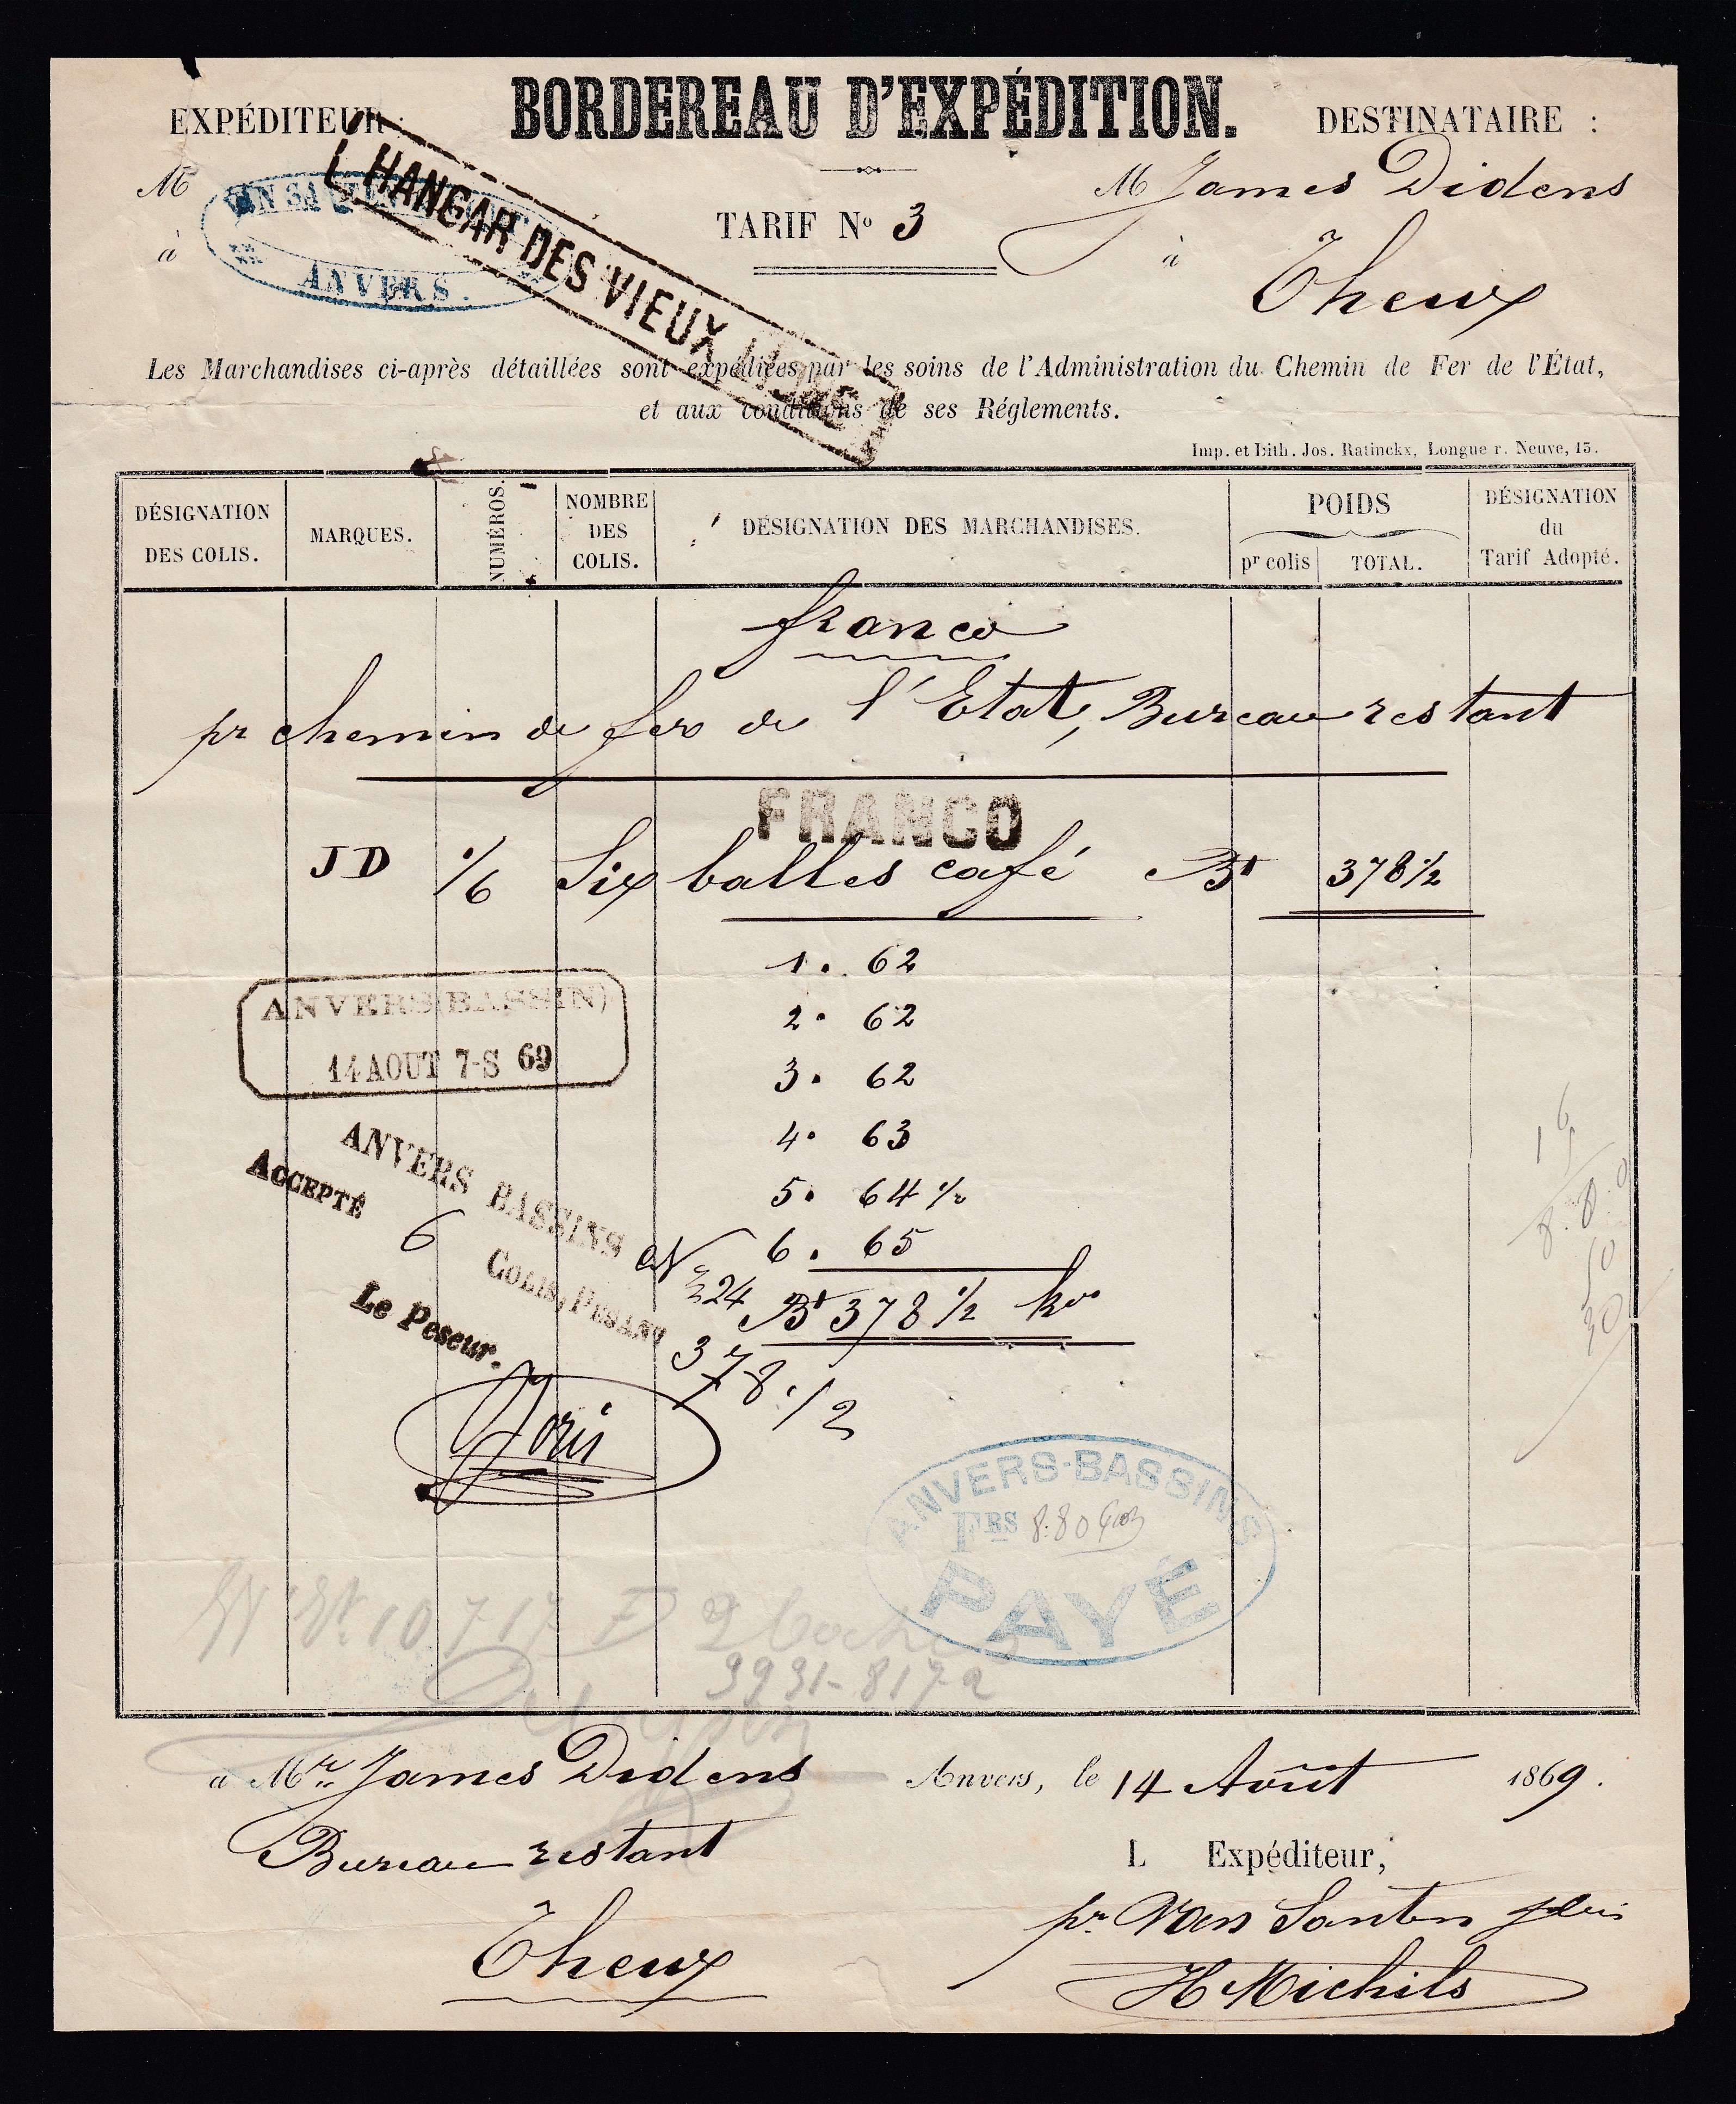 BORDEREAU D'EXPÉDITION.
EXPÉDITEUR :
DESTINATAIRE :
M
à
ANVERS.
HANGAR DES VIEUX
TARIF Nº 3
M James Didens
à
Theux
Les Marchandises ci-après détaillées sont expédiées par les soins de l'Administration du Chemin de Fer de l'État,
et aux conditions de ses Réglements.
Imp. et Lith. Jos. Ratinckx, Longue r. Neuve, 15.
DÉSIGNATION DES COLIS.
MARQUES.
NUMÉROS.
NOMBRE DES COLIS.
DÉSIGNATION DES MARCHANDISES.
POIDS
pr colis
TOTAL.
DÉSIGNATION du Tarif Adopté.
franco
pr chemin de fer de l'Etat, Bureau restant
FRANCO
JD 1/6 Six balles café Bt 378 1/2
1. 62
2. 62
3. 62
4. 63
5. 64 1/2
6. 65
Bt 378 1/2 kos
ANVERS (BASSIN)
14 AOUT 7-S 69
ANVERS BASSINS N 324
ACCEPTÉ 6 COLIS, PESANT 378 1/2
Le Peseur.
Joris
ANVERS-BASSINS
FRS 8.80
PAYÉ
10717
3931-8172
à Mr James Didens
Bureau restant
Theux
Anvers, le 14 Août 1869.
L Expéditeur,
pr Van Santen
H Michils